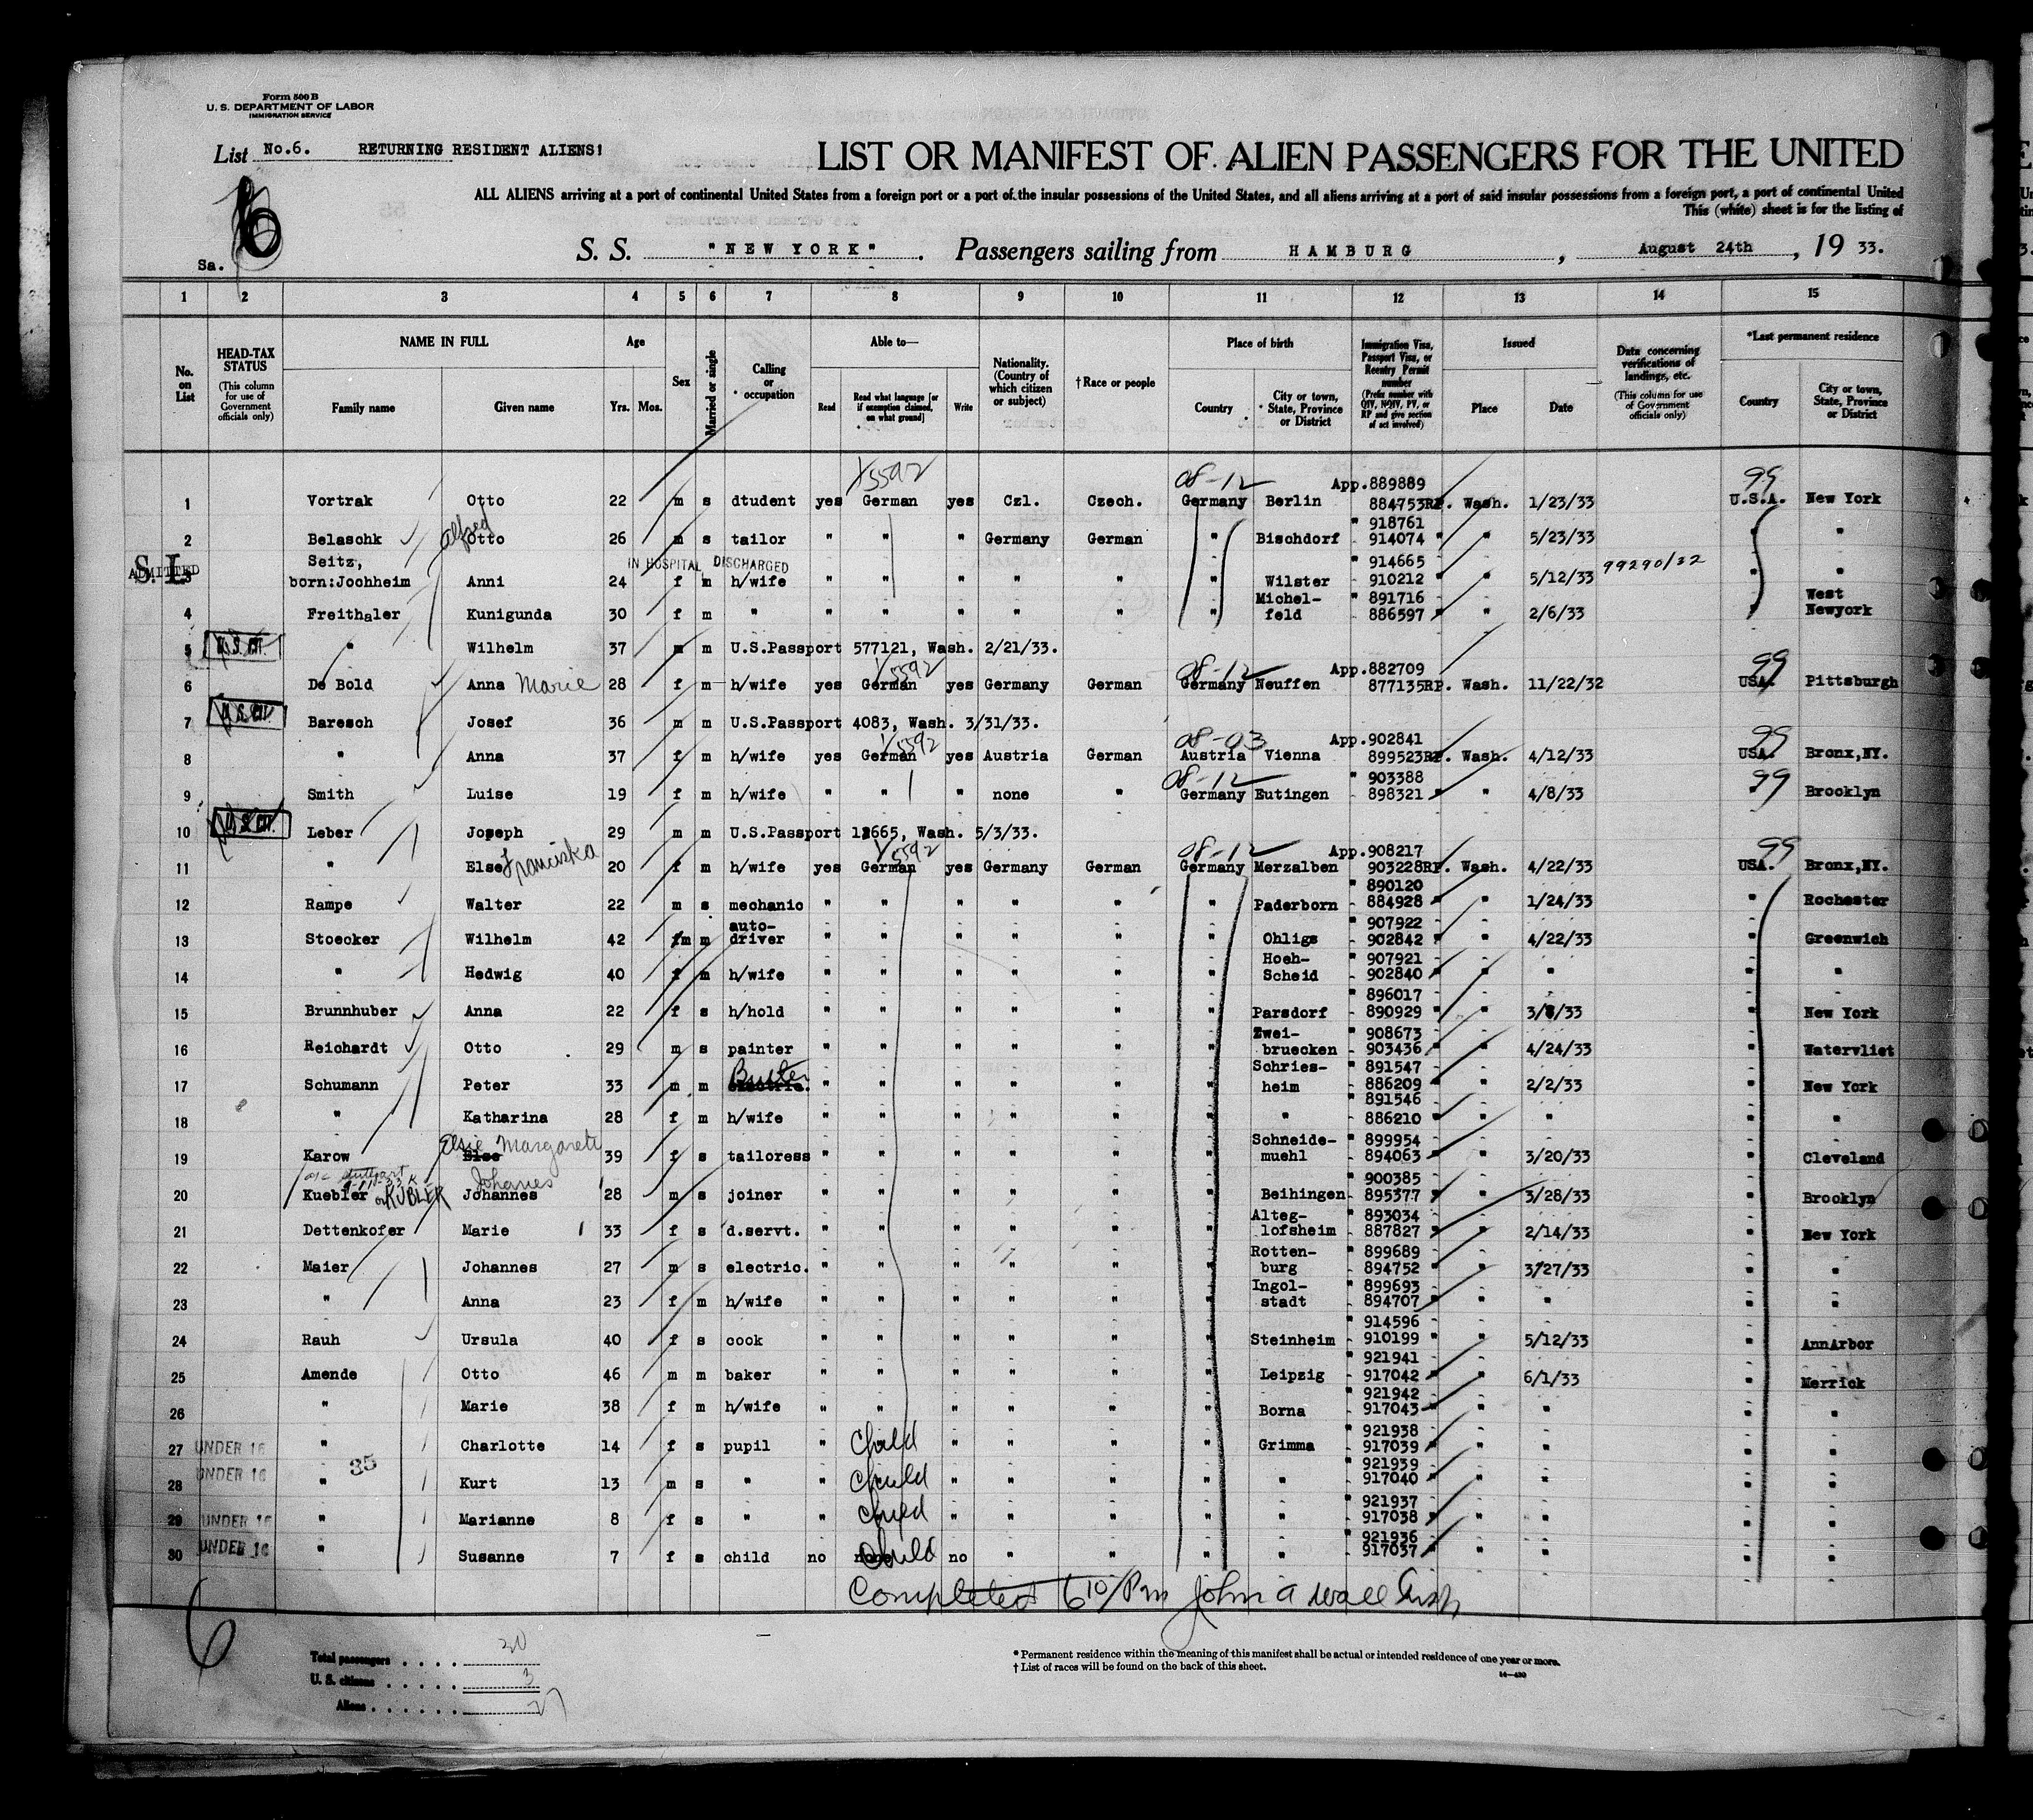 Form 500 B
U. S. DEPARTMENT OF LABOR
IMMIGRATION SERVICE
List No.6. RETURNING RESIDENT ALIENS!
LIST OR MANIFEST OF ALIEN PASSENGERS FOR THE UNITED
ALL ALIENS arriving at a port of continental United States from a foreign port or a port of the insular possessions of the United States, and all aliens arriving at a port of said insular possessions from a foreign port, a port of continental United
This (white) sheet is for the listing of
6
Sa.
S. S. "NEW YORK". Passengers sailing from HAMBURG, August 24th, 19 33.
1 2 3 4 5 6 7 8 9 10 11 12 13 14 15
No. on List
HEAD-TAX STATUS (This column for use of Government officials only)
NAME IN FULL Family name Given name
Age Yrs. Mos.
Sex
Married or single
Calling or occupation
Able to— Read Read what language [or if exemption claimed, on what ground] Write
Nationality. (Country of which citizen or subject)
†Race or people
Place of birth Country City or town, State, Province or District
Immigration Visa, Passport Visa, or Reentry Permit number (Prefix number with QIV, NQIV, PV, or RP and give section of act involved)
Issued Place Date
Data concerning verifications of landings, etc. (This column for use of Government officials only)
*Last permanent residence Country City or town, State, Province or District
1/5592 08-12 App.889889 99
1 Vortrak Otto 22 m s dtudent yes German yes Czl. Czech. Germany Berlin 884753RP. Wash. 1/23/33 U.S.A. New York
Alfred " 918761
2 Belaschk Otto 26 m s tailor " " " Germany German " Bischdorf 914074 " " 5/23/33 " "
Seitz, IN HOSPITAL DISCHARGED " 914665 99290/32
S.I. ADMITTED 3 born:Jochheim Anni 24 f m h/wife " " " " " " Wilster 910212 " " 5/12/33 " "
Michel- " 891716 West
4 Freithaler Kunigunda 30 f m " " " " " " " feld 886597 " " 2/6/33 " Newyork
5 U.S. CIT. " Wilhelm 37 m m U.S.Passport 577121, Wash. 2/21/33.
1/5592 08-12 App.882709 99
6 De Bold Anna Marie 28 f m h/wife yes German yes Germany German Germany Neuffen 877135RP. Wash. 11/22/32 USA. Pittsburgh
7 U.S. CIT. Baresch Josef 36 m m U.S.Passport 4083, Wash. 3/31/33.
1/5592 08-03 App.902841 99
8 " Anna 37 f m h/wife yes German yes Austria German Austria Vienna 899523RP. Wash. 4/12/33 USA. Bronx,NY.
08-12 " 903388 99
9 Smith Luise 19 f m h/wife " " " none " Germany Eutingen 898321 " " 4/8/33 " Brooklyn
10 U.S. CIT. Leber Joseph 29 m m U.S.Passport 12665, Wash. 5/3/33.
1/5592 08-12 App.908217 99
11 " Else Franciska 20 f m h/wife yes German yes Germany German Germany Merzalben 903228RP. Wash. 4/22/33 USA. Bronx,NY.
" 890120
12 Rampe Walter 22 m s mechanic " " " " " " Paderborn 884928 " " 1/24/33 " Rochester
auto- " 907922
13 Stoecker Wilhelm 42 fm m driver " " " " " " Ohligs 902842 " " 4/22/33 " Greenwich
Hoeh- " 907921
14 " Hedwig 40 f m h/wife " " " " " " Scheid 902840 " " " " "
" 896017
15 Brunnhuber Anna 22 f s h/hold " " " " " " Parsdorf 890929 " " 3/8/33 " New York
Zwei- " 908673
16 Reichardt Otto 29 m s painter " " " " " " bruecken 903436 " " 4/24/33 " Watervliet
Schries- " 891547
17 Schumann Peter 33 m m electric. " " " " " " heim 886209 " " 2/2/33 " New York
" 891546
18 " Katharina 28 f m h/wife " " " " " " " 886210 " " " " "
Elsie Margarete Schneide- " 899954
19 Karow Else 39 f s tailoress " " " " " " muehl 894063 " " 3/20/33 " Cleveland
Johannes " 900385
20 Kuebler or KUBLER Johannes 28 m s joiner " " " " " " Beihingen 895377 " " 3/28/33 " Brooklyn
Alteg- " 893034
21 Dettenkofer Marie 33 f s d.servt. " " " " " " lofsheim 887827 " " 2/14/33 " New York
Rotten- " 899689
22 Maier Johannes 27 m s electric. " " " " " " burg 894752 " " 3/27/33 " "
Ingol- " 899693
23 " Anna 23 f m h/wife " " " " " " stadt 894707 " " " " "
" 914596
24 Rauh Ursula 40 f s cook " " " " " " Steinheim 910199 " " 5/12/33 " AnnArbor
" 921941
25 Amende Otto 46 m m baker " " " " " " Leipzig 917042 " " 6/1/33 " Merrick
" 921942
26 " Marie 38 f m h/wife " " " " " " Borna 917043 " " " " "
" 921938
27 UNDER 16 " Charlotte 14 f s pupil " Child " " " " Grimma 917039 " " " " "
35 " 921939
28 UNDER 16 " Kurt 13 m s " " Child " " " " " 917040 " " " " "
" 921937
29 UNDER 16 " Marianne 8 f s " " Child " " " " " 917038 " " " " "
" 921936
30 UNDER 16 " Susanne 7 f s child no none Child no " " " " 917037 " " " " "
Completed 6 10/Pm John A Wall
6
Total passengers . . . . 30
U. S. citizens . . . . . 3
Aliens . . . . . . 27
* Permanent residence within the meaning of this manifest shall be actual or intended residence of one year or more.
† List of races will be found on the back of this sheet.
14—430